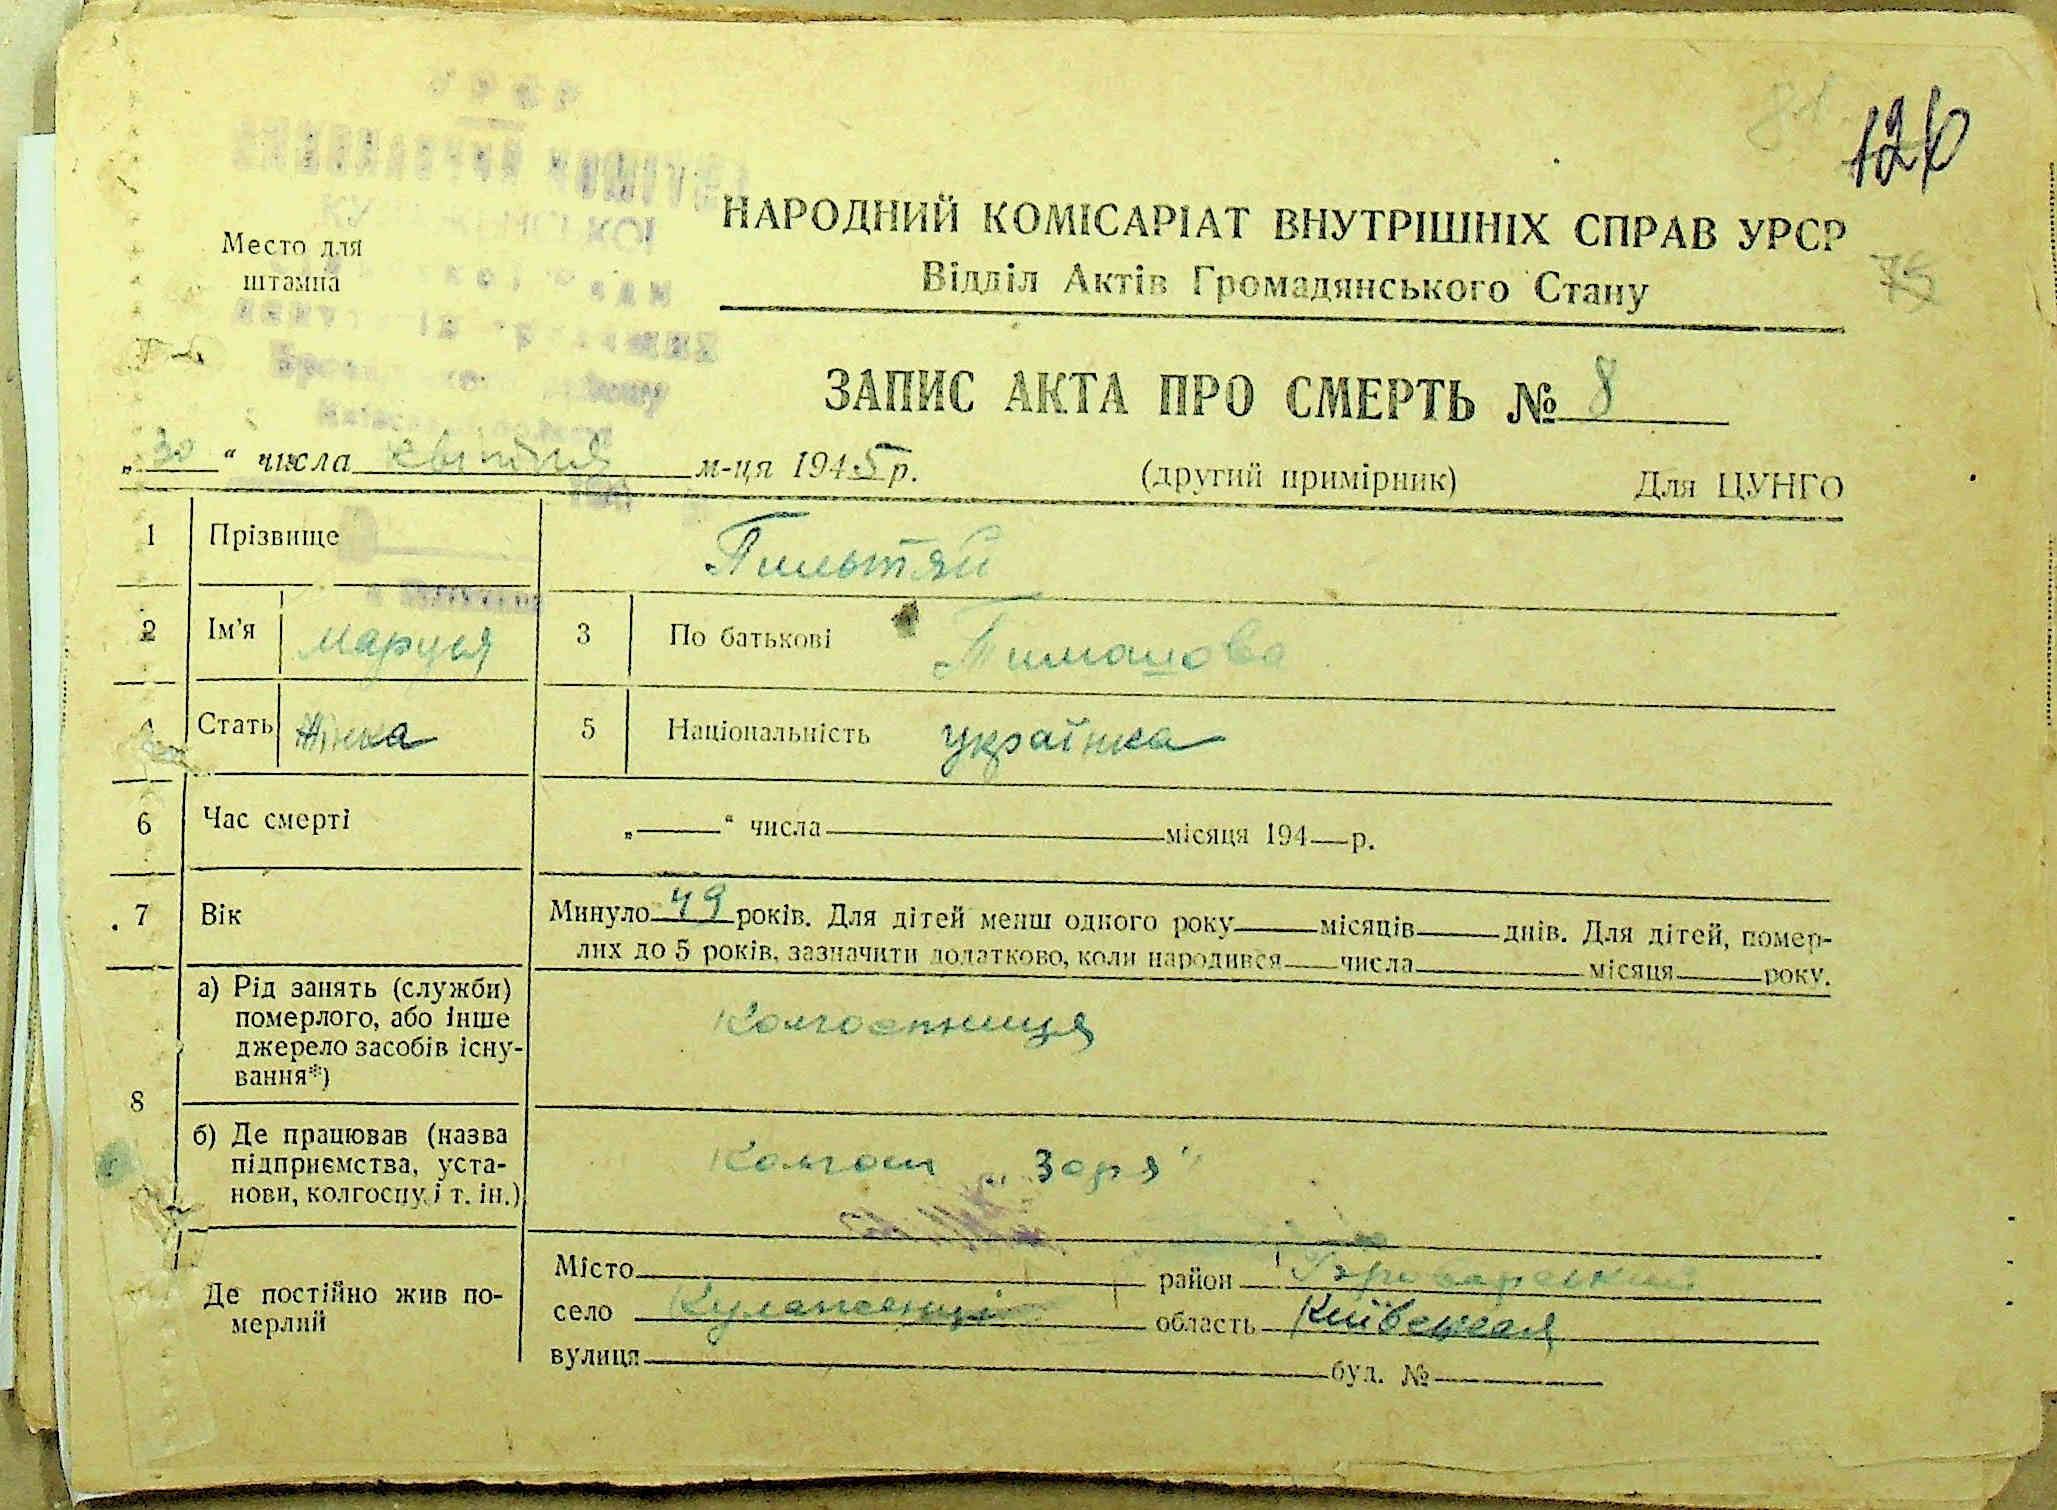 81
126
НАРОДНИЙ КОМІСАРІАТ ВНУТРІШНІХ СПРАВ УРСР
Место для
штампа
Відділ Актів Громадянського Стану
75
ЗАПИС АКТА ПРО СМЕРТЬ № 8
„30“ числа квітня м-ця 1945 р. (другий примірник) Для ЦУНГО
1 Прізвище Пильтяй
2 Ім'я Маруся 3 По батькові
4 Стать Жінка 5 Національність українка
6 Час смерті „ “ числа місяця 194 р.
7 Вік Минуло 49 років. Для дітей менш одного року місяців днів. Для дітей, помер-
лих до 5 років, зазначити додатково, коли народився числа місяця року.
8
а) Рід занять (служби)
померлого, або інше
джерело засобів існу-
вання*)
Колгоспниця
б) Де працював (назва
підприємства, уста-
нови, колгоспу і т. ін.)
Колгосп „Зоря"
Де постійно жив по-
мерлий
Місто район Броварський
село Кулаженці область Київская
вулиця буд. №